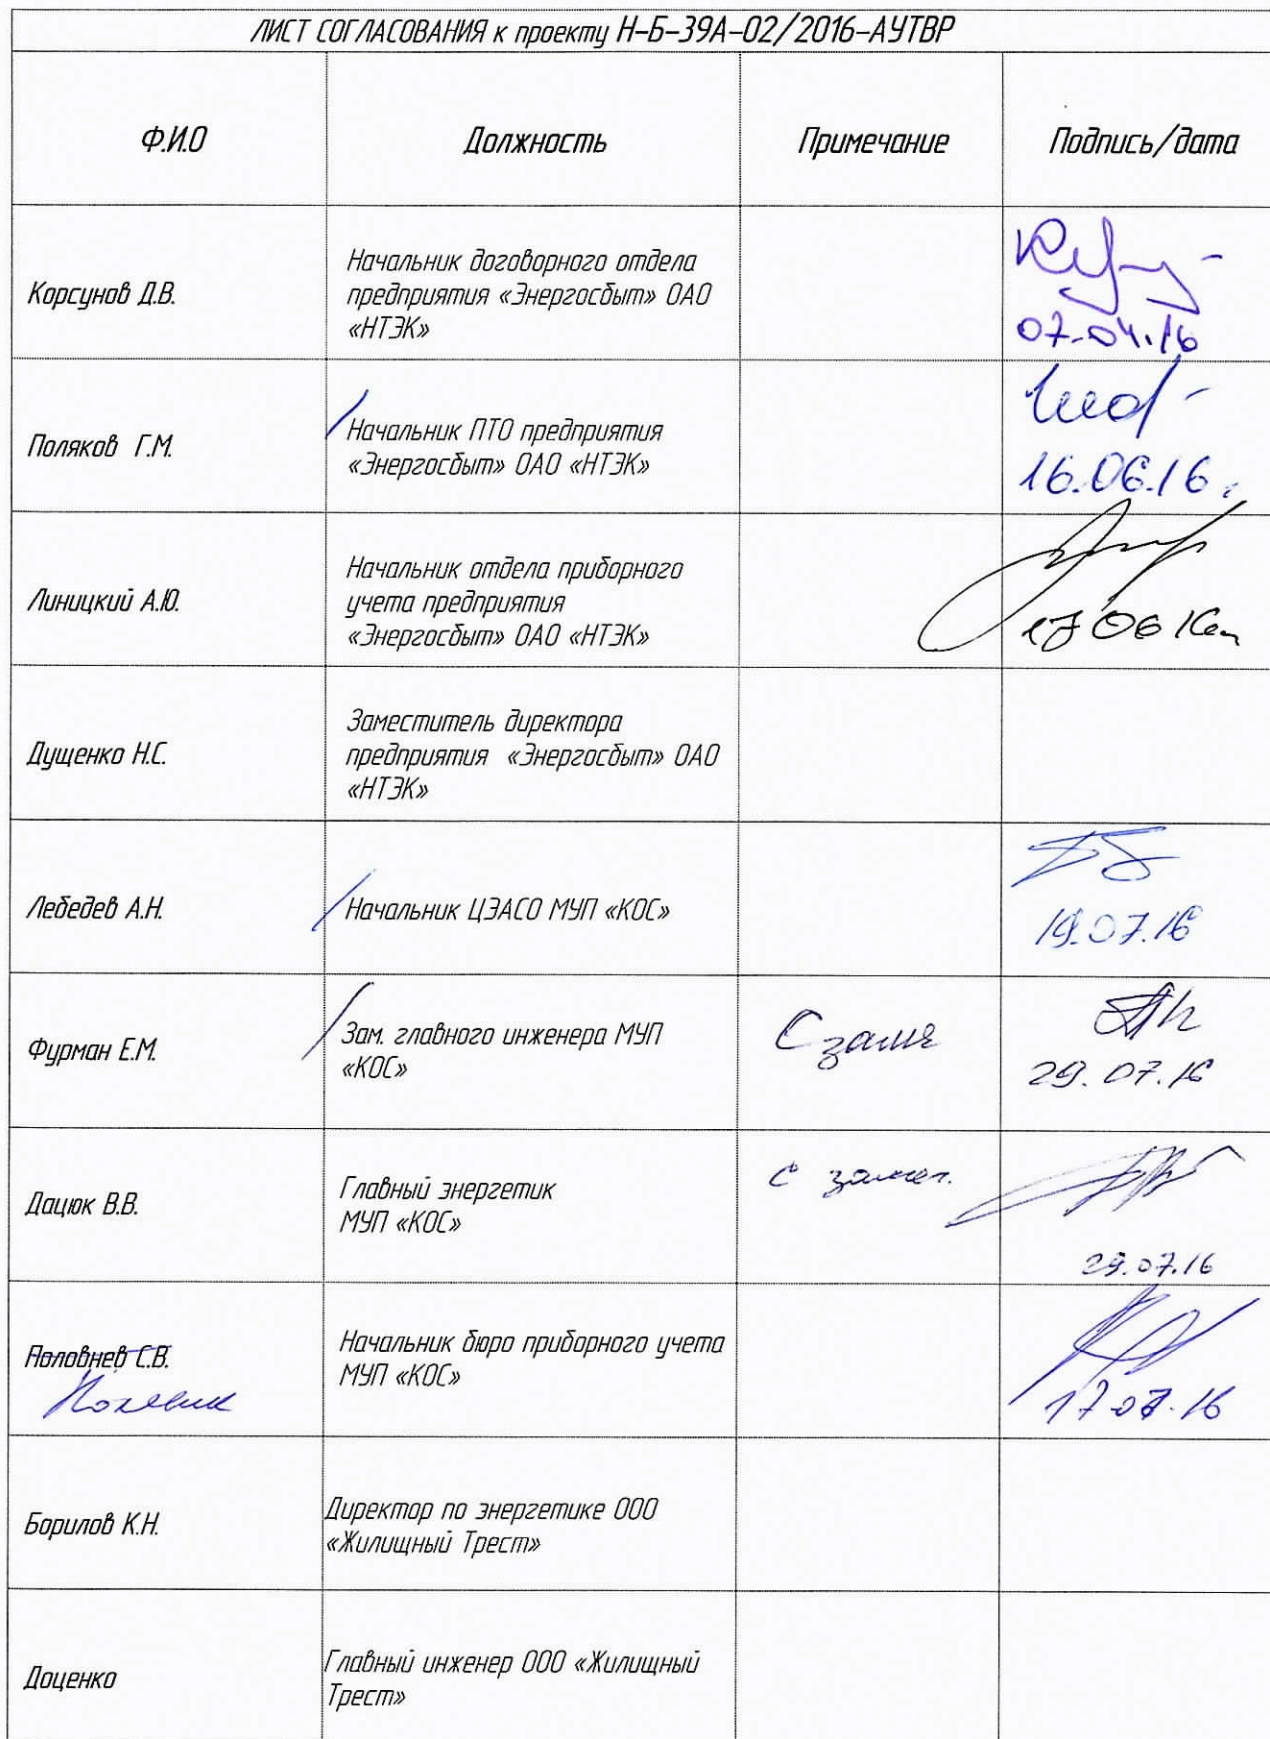 ЛИСТ СОГЛАСОВАНИЯ к проекту Н-Б-39А-02/2016-АУТВР
Ф.И.О
Должность
Примечание
Подпись/дата
Корсунов Д.В.
Начальник договорного отдела
предприятия «Энергосбыт» ОАО
«НТЭК»
07.04.16
Поляков Г.М.
Начальник ПТО предприятия
«Энергосбыт» ОАО «НТЭК»
16.06.16
Линицкий А.Ю.
Начальник отдела приборного
учета предприятия
«Энергосбыт» ОАО «НТЭК»
17 06 16
Дущенко Н.С.
Заместитель директора
предприятия «Энергосбыт» ОАО
«НТЭК»
Лебедев А.Н.
Начальник ЦЭАСО МУП «КОС»
19.07.16
Фурман Е.М.
Зам. главного инженера МУП
«КОС»
С
29.07.16
Дацюк В.В.
Главный энергетик
МУП «КОС»
с замеч.
29.07.16
Половнев С.В.
Начальник бюро приборного учета
МУП «КОС»
17.07.16
Борилов К.Н.
Директор по энергетике ООО
«Жилищный Трест»
Доценко
Главный инженер ООО «Жилищный
Трест»